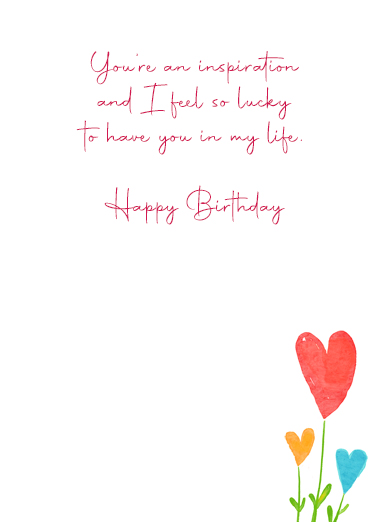 You're an inspiration
and I feel so lucky
to have you in my life.
Happy Birthday